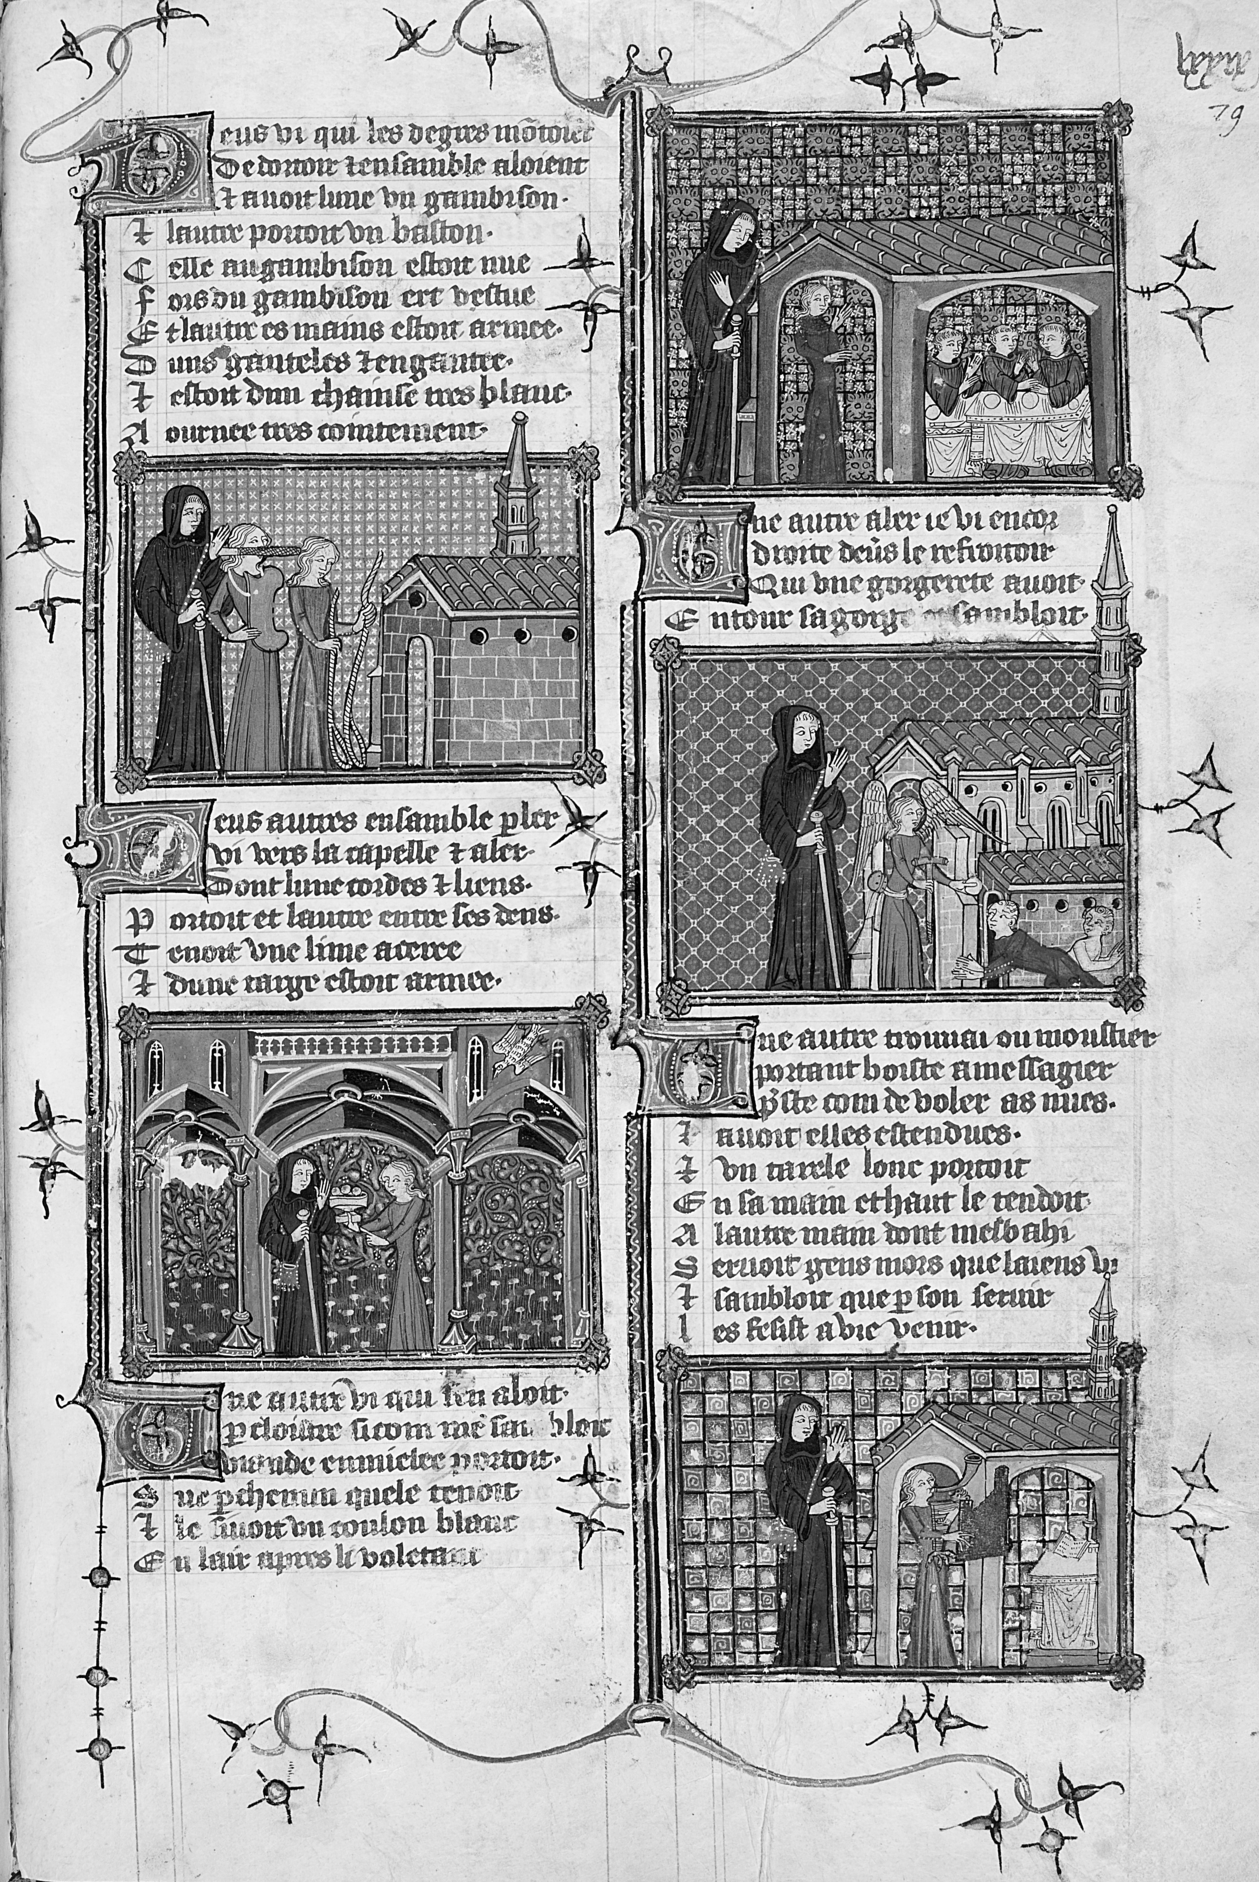 Deus vi qui les degres mōtoiēt
De dortoir ⁊ ensamble aloient
⁊ avoit lune vn gambison.
⁊ lautre portoit vn baston.
Celle au gambison estoit nue
fors du gambison ert vestue
Et lautre es mains estoit armee.
Duns ganteles ⁊ engantee.
⁊ estoit dun chainse tres blanc.
Aournee tres cointement.
Deus autres ensamble pler
vi vers la capelle ⁊ aler.
Dont lune cordes ⁊ liens.
Portoit et lautre entre ses dens.
Tenoit vne lime aceree
⁊ dune targe estoit armee.
Vne autre vi qui sen aloit.
p cloistre si com me sambloit
viande enmielee portoit.
Sue p chemin quele tenoit
⁊ le sivoit vn coulon blanc
En lair apres li voletant
lxxix
79
Vne autre aler ie vi encor
droite deūs le refroitoir
Qui vne gorgerete avoit.
Entour sa gorge sambloit.
Vne autre trouuai ou moustier
portant boiste a messagier
p̄ste com de voler as nues.
⁊ avoit elles estendues.
⁊ vn tarele lonc portoit
En sa main et haut le tendoit.
A lautre main dont mesbahi
Servoit gens mors que laiens vi
⁊ sambloit que p son servir
les fesist a vie venir.